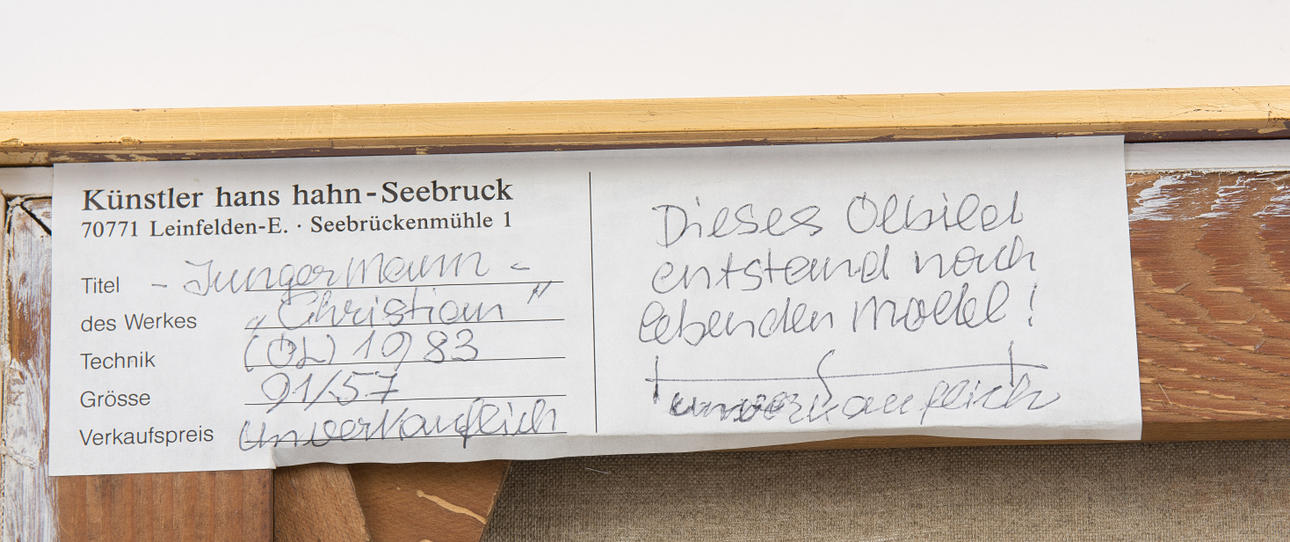 Künstler hans hahn-Seebruck
70771 Leinfelden-E. · Seebrückenmühle 1
Titel - Junger Mann -
des Werkes „Christian"
Technik (ÖL) 1983
Grösse 91/57
Verkaufspreis unverkauflich
Dieses Ölbild
entstand nach
lebenden Modell!
unverkauflich